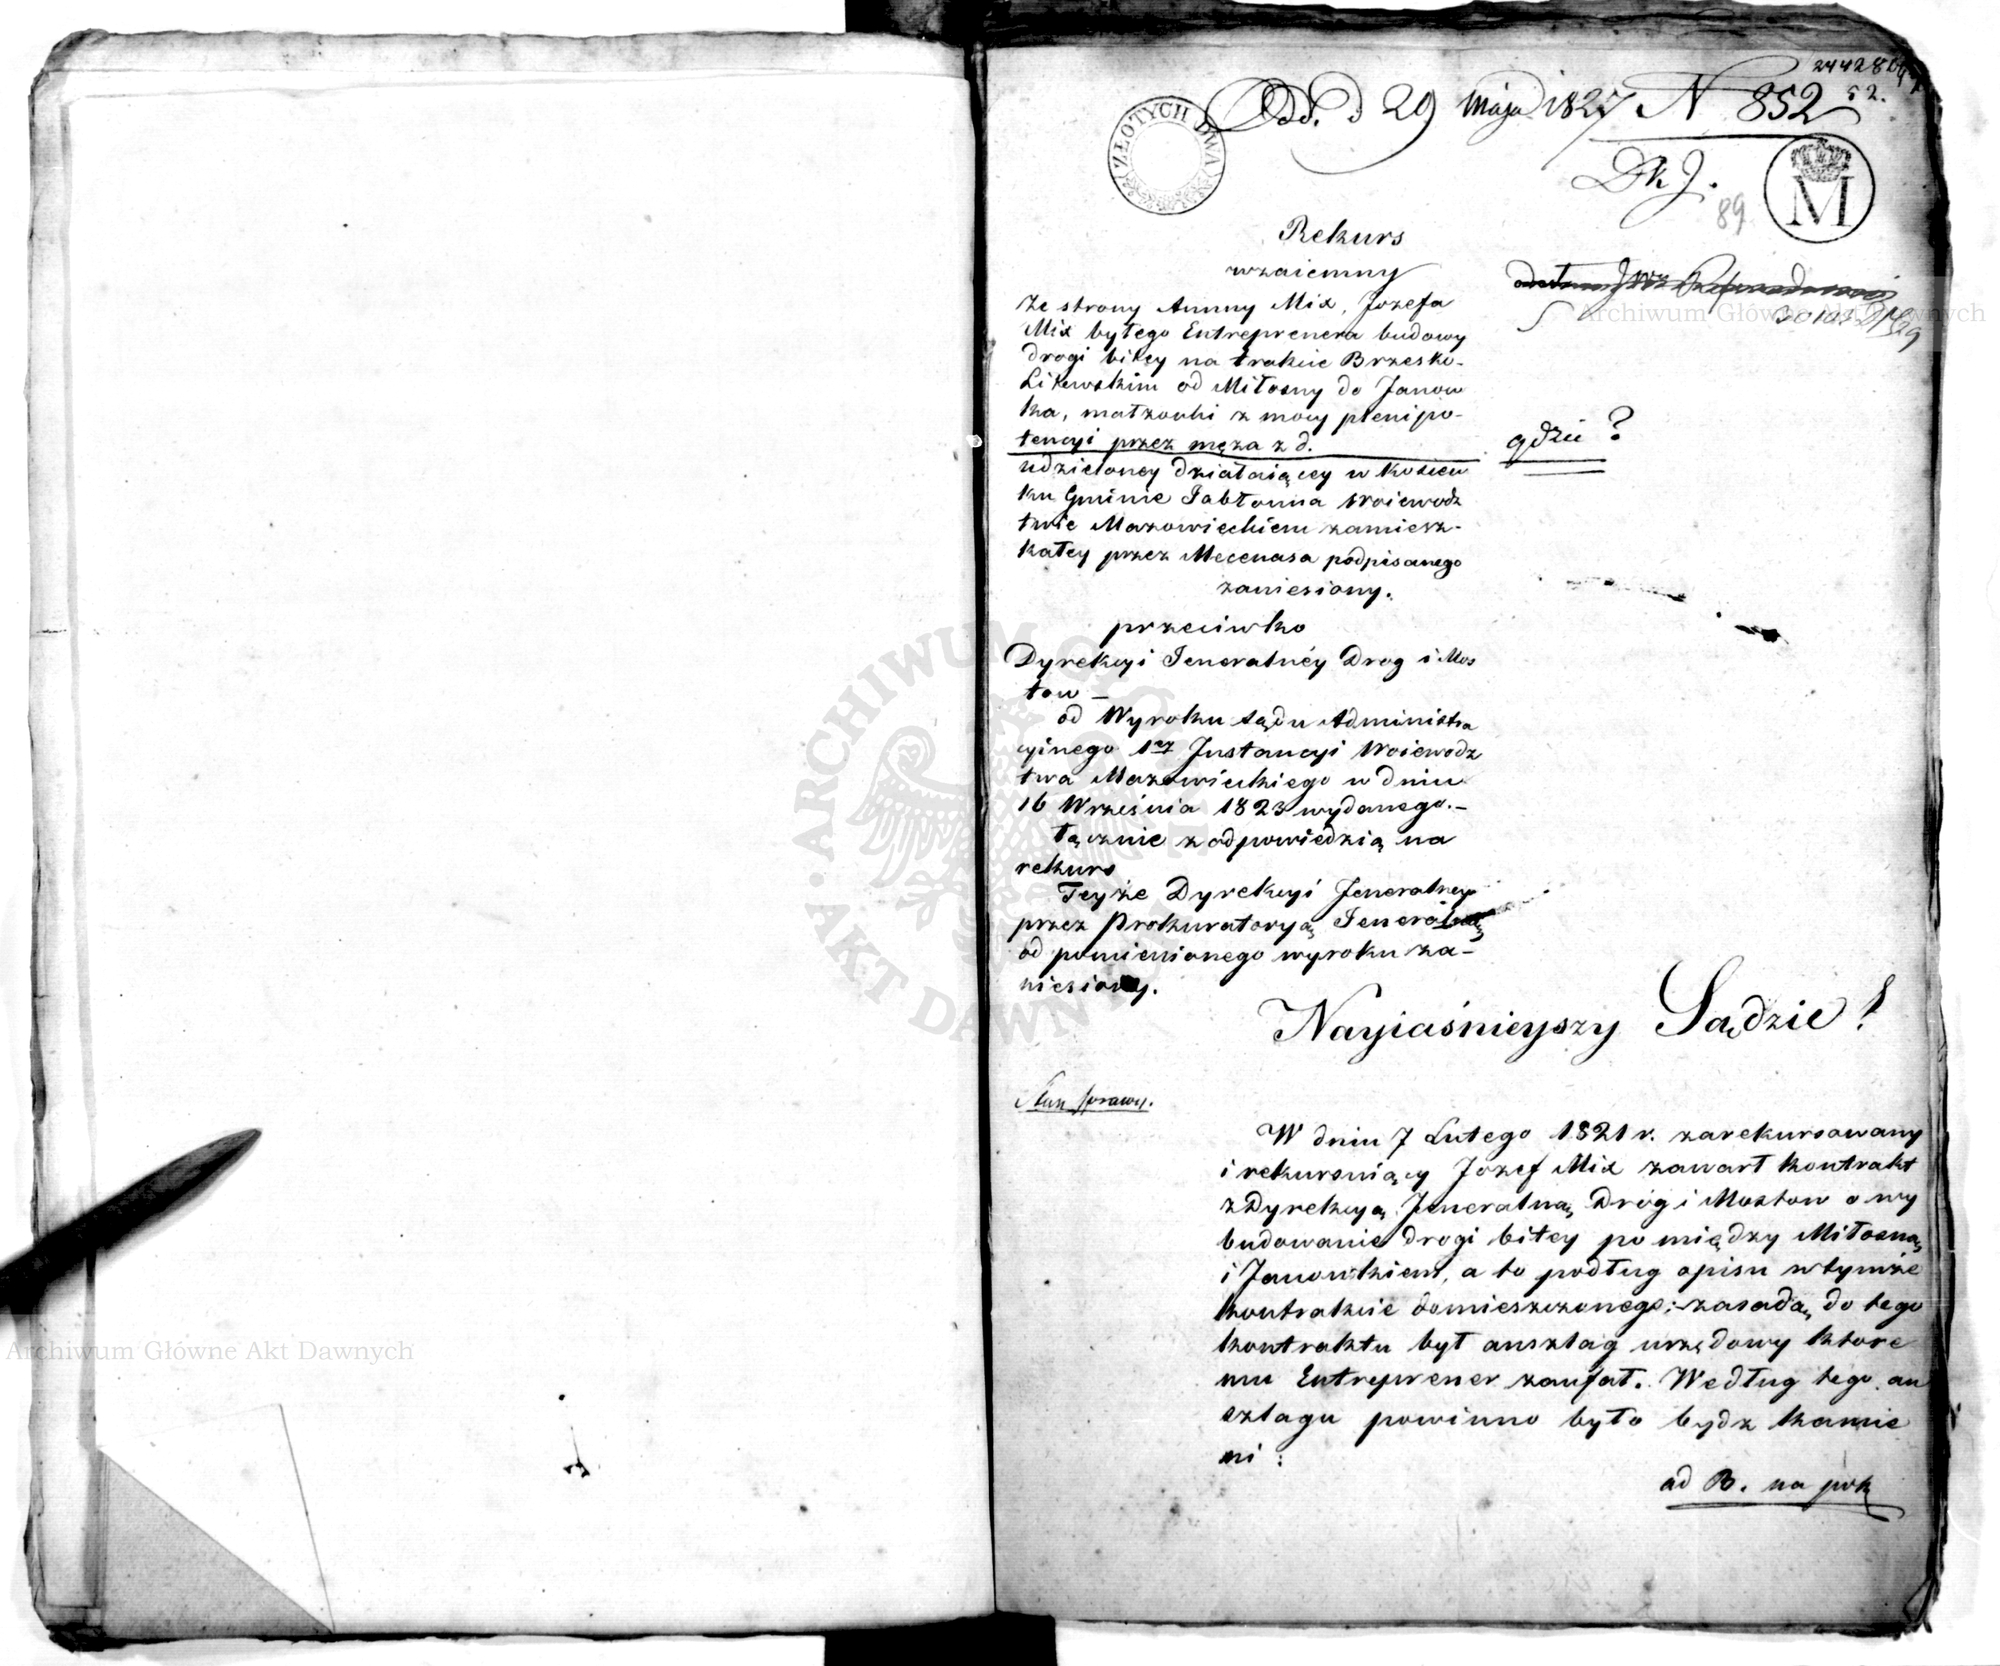 Od. d 29 Maja 1827 N 852
ZŁOTYCH DWA
M
89
Rekurs
wzaiemny
Ze strony Anny Mix, Jozefa
Mix byłego Entreprenera budowy
drogi bitey na trakcie Brzesko-
Litewskim od Miłosny do Janow
ka, małzonki z mocy plenipo-
tencyi przez męza z d.
gdzie?
udzieloney działaiącey w Kosiew
ku Gminie Jabłonna Woiewodz
twie Mazowieckiem zamiesz-
kałey przez Mecenasa podpisanego
zaniesiony.
przeciwko
Dyrekcyi Jeneralnéy Drog i Mos
tow —
od Wyroku sądu Administra
cyinego 1ey Instancyi Woiewodz
twa Mazowieckiego w dniu
16 Września 1823 wydanego.—
łącznie z odpowiedzią na
rekurs
Teyże Dyrekcyi Jeneralney
przez Prokuratoryą Jeneralną
od pomienionego wyroku za-
niesiony.
Nayiaśnieyszy Sądzie!
Stan sprawy.
W dniu 7 Lutego 1821 r. zarekursowany
i rekursuiący Jozef Mix zawarł kontrakt
z Dyrekcyą Jeneralną Dróg i Mostow o wy
budowanie drogi bitey pomiędzy Miłosną
i Janowkiem, a to podług opisu w tymże
kontrakcie domieszczonego: zasadą do tego
kontraktu był anszlag urzędowy ktore
mu Entreprener zaufał. Według tego an
szlagu powinno było bydz kamie
ni:
ad B. na
Archiwum Główne Akt Dawnych
Archiwum Główne Akt Dawnych
ARCHIWUM GŁÓWNE AKT DAWNYCH